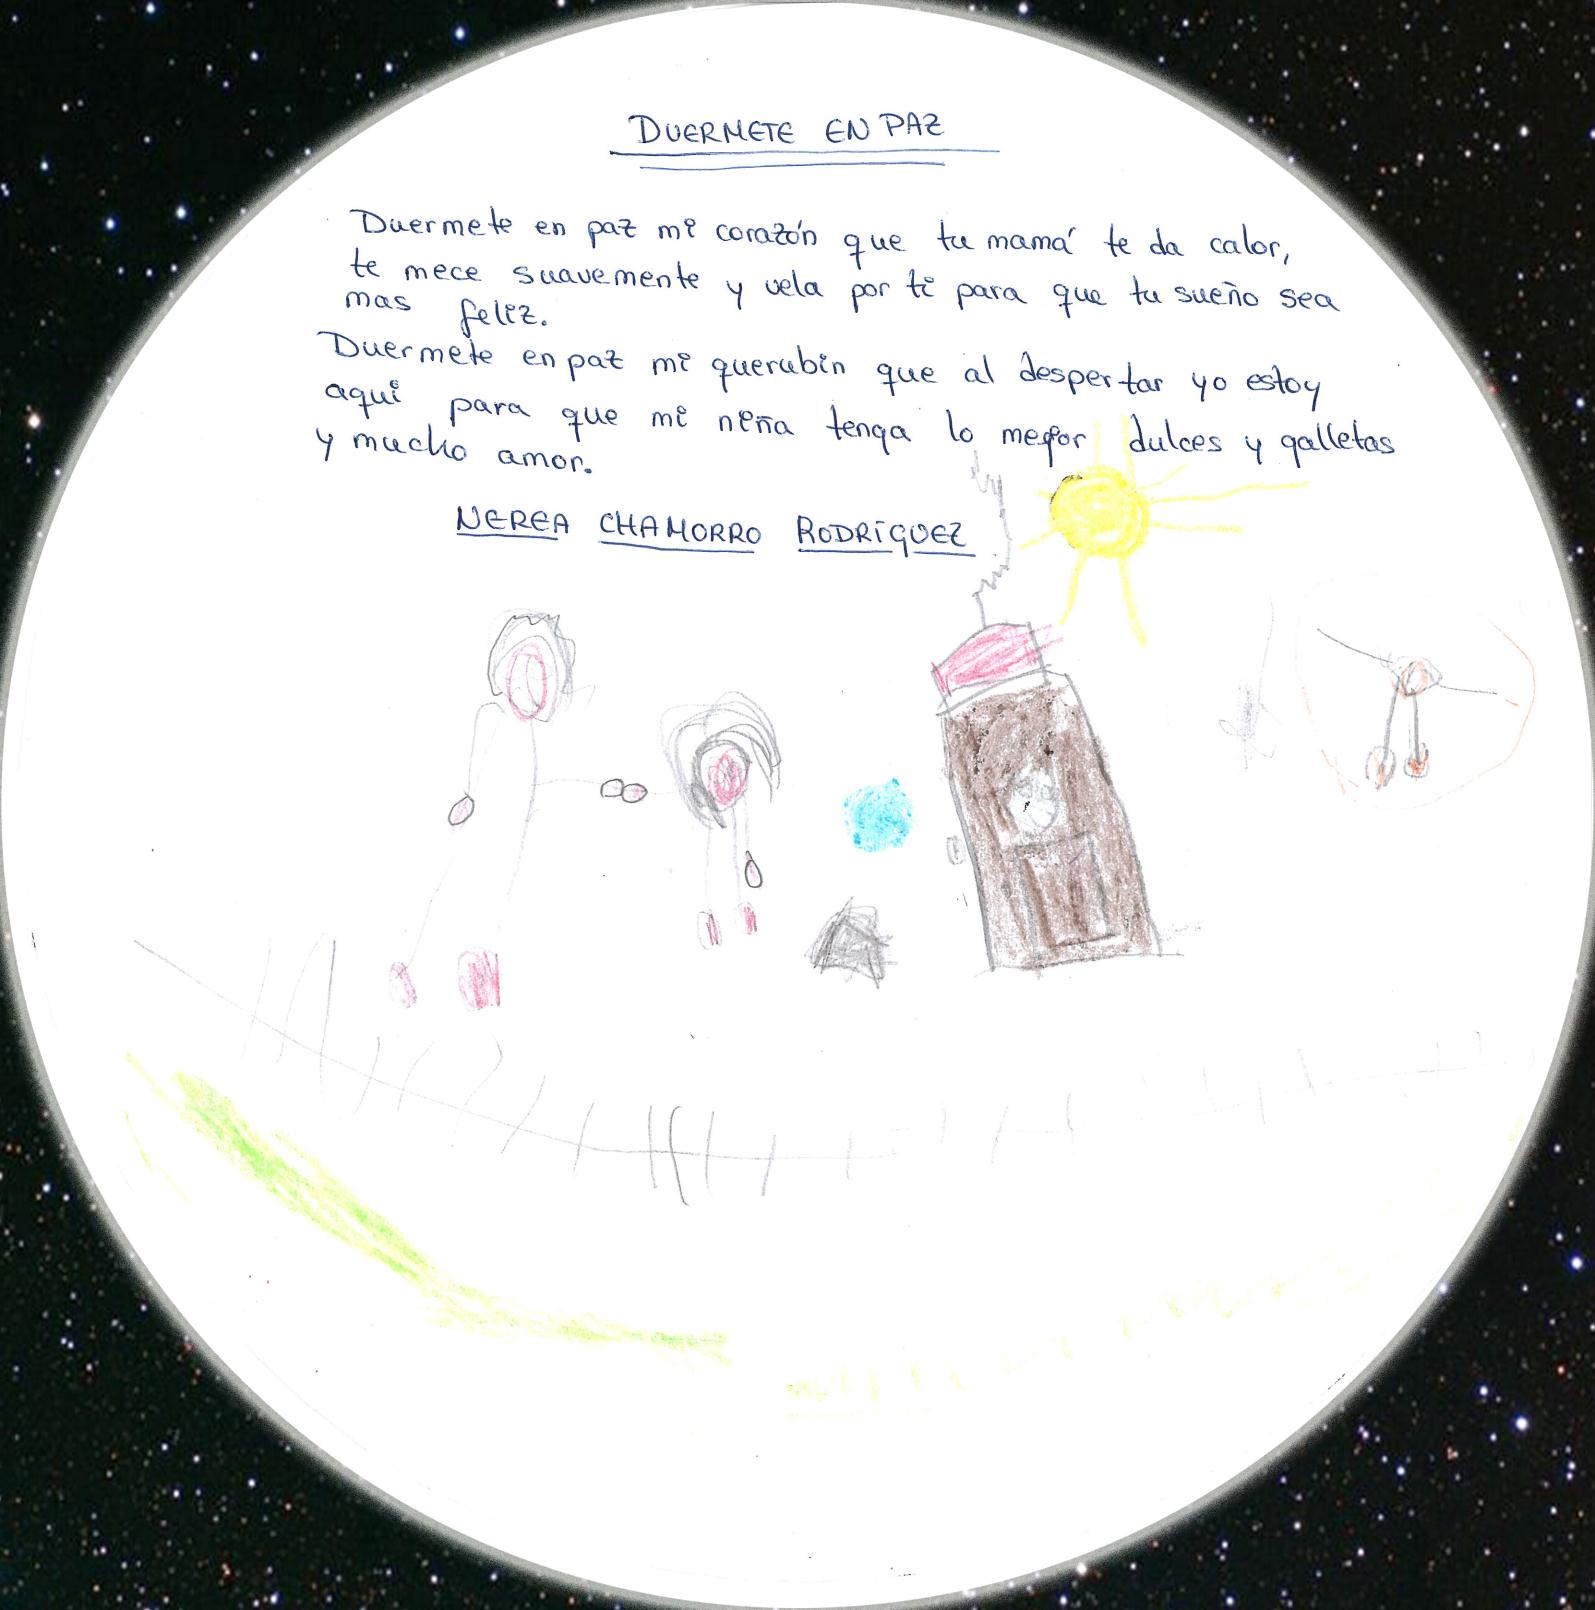 DUERMETE EN PAZ
Duermete en paz mi corazón que tu mamá te da calor,
te mece suavemente y vela por ti para que tu sueño sea
mas feliz.
Duermete en paz mi querubin que al despertar yo estoy
aqui para que mi niña tenga lo mejor dulces y galletas
y mucho amor.
NEREA CHAMORRO RODRÍGUEZ